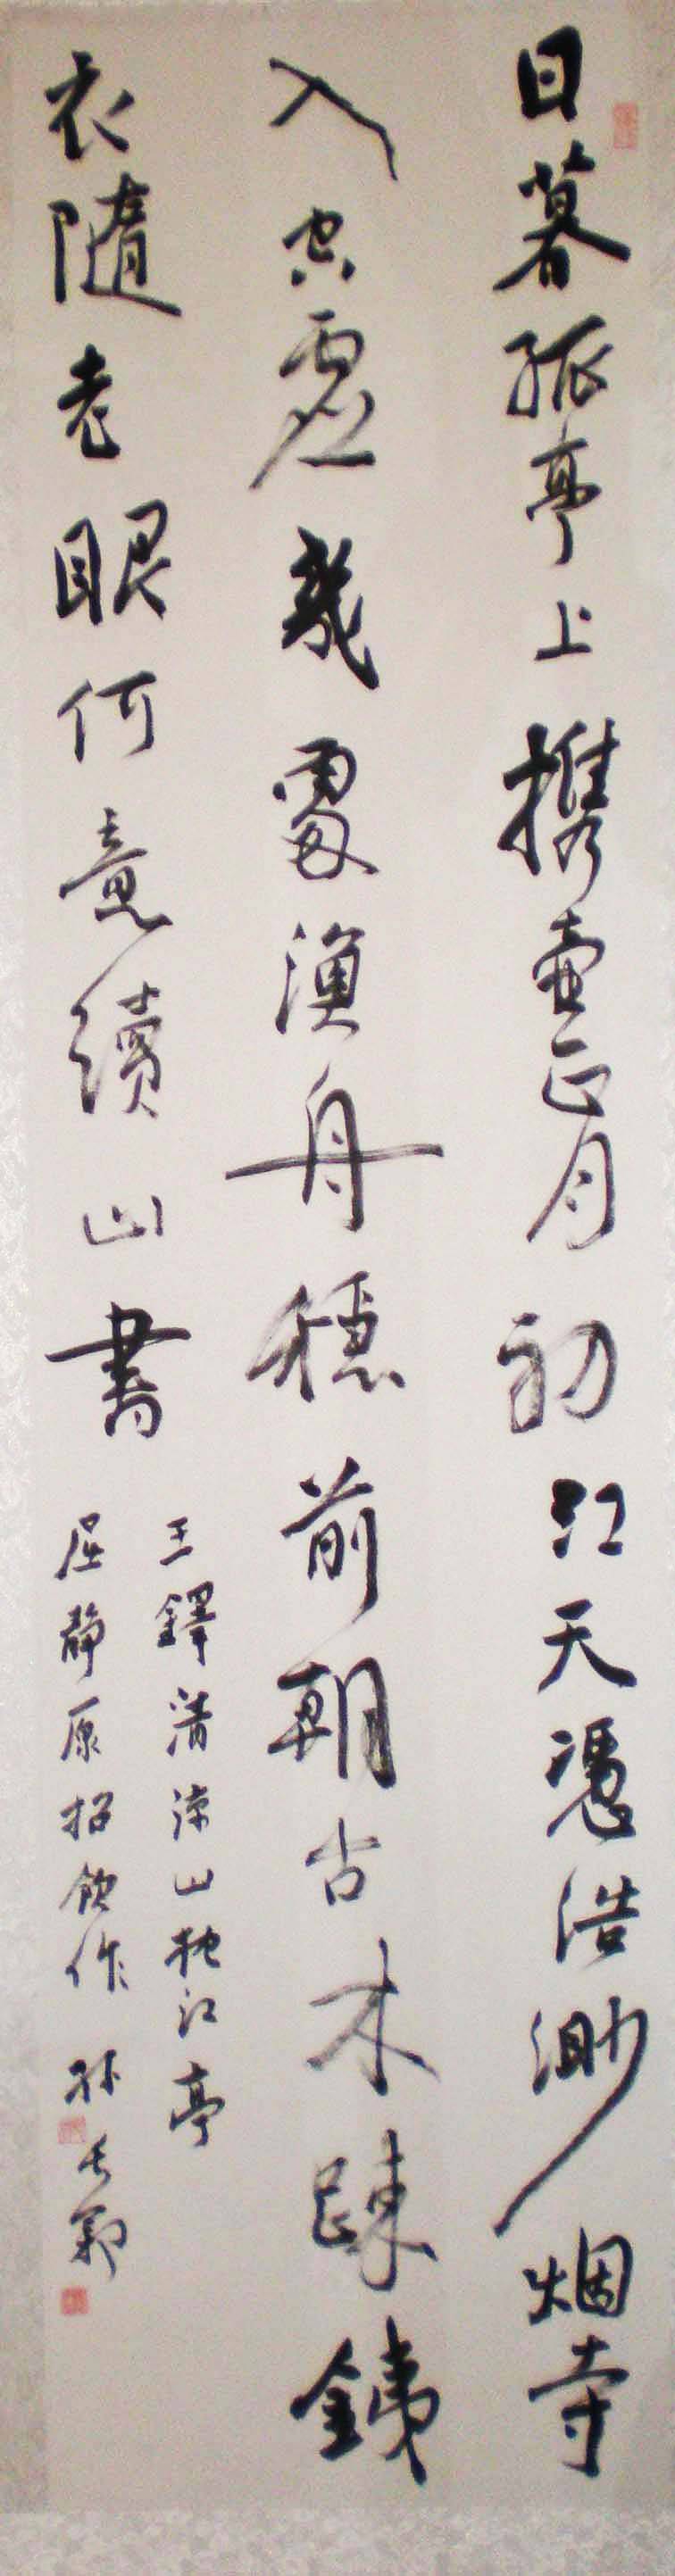 日暮孤亭上携壶正月初江天憑浩渺烟寺
入空虚幾處漁舟穩前朝古木疎鐵
衣隨老眼何意續山書
王鐸清涼山挹江亭
屈静原招飲作 孙长郭